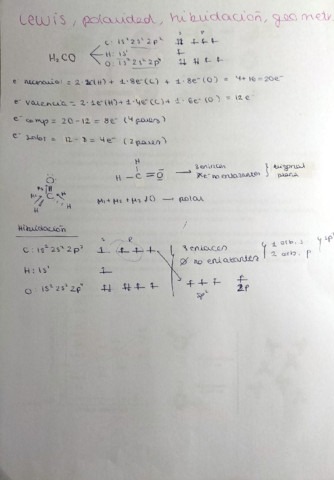 Lewis, polaridad, hibridación, geometr
H₂CO
C: 1s² 2s² 2p²
H: 1s¹
O: 1s² 2s² 2p⁴
s p
e⁻ necesarios = 2·2(H) + 1·8e⁻(C) + 1·8e⁻(O) = 4+16=20e⁻
e⁻ valencia = 2·1e⁻(H) + 1·4e⁻(C) + 1·6e⁻(O) = 12e⁻
e⁻ comp = 20-12 = 8e⁻ (4 pares)
e⁻ solit = 12-8 = 4e⁻ (2 pares)
H
H-C=O
3 enlaces
no enlazantes
trigonal
plana
O
C
H H
μ₁ + μ₂ + μ₃ ≠ 0 → polar
Hibridación
s p
C: 1s² 2s² 2p²
3 enlaces
∅ no enlazantes
1 orb. s
2 orb. p
sp²
H: 1s¹
O: 1s² 2s² 2p⁴
sp²
2p